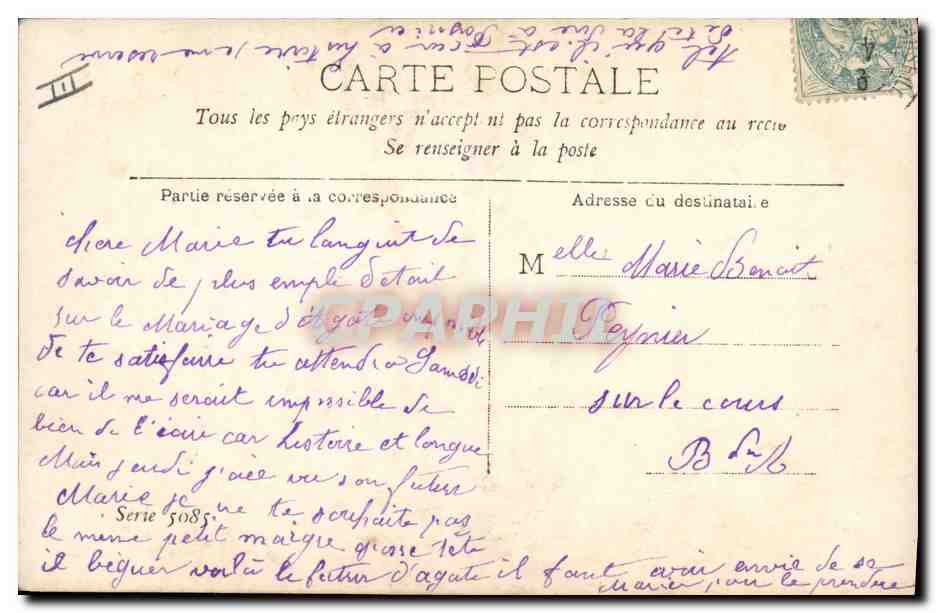 CARTE POSTALE
Tous les pays étrangers n'acceptent pas la correspondance au recto
Se renseigner à la poste
Partie réservée à la correspondance
Adresse du destinataire
chere Marie tu languit de
savoir de plus emple detail
sur le Mariage d'Agate
de te satisfaire tu attendra Samedi
car il me serait impossible de
bien de l'ecrire car histoire et longue
Mais jeudi j'aie vu son futur
Marie je ne te souhaite pas
le meme petit maigre grosse tete
il béguer voilà le futur d'agate il faut avoir envie de se
Marier pour le prendre
Serie 5085
Melle Marie Benoit
Peynier
sur le cours
B du R
tel qu'il est
GRAPHIL
III